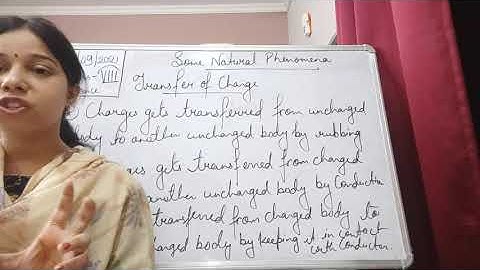 /09/2021
VIII
Some Natural Phenomena
Transfer of Charge
Charges gets transferred from uncharged
body to another uncharged body by rubbing
gets transferred from charged
another uncharged body by Conductor
transferred from charged body to
body by keeping it in contact
with Conductor.